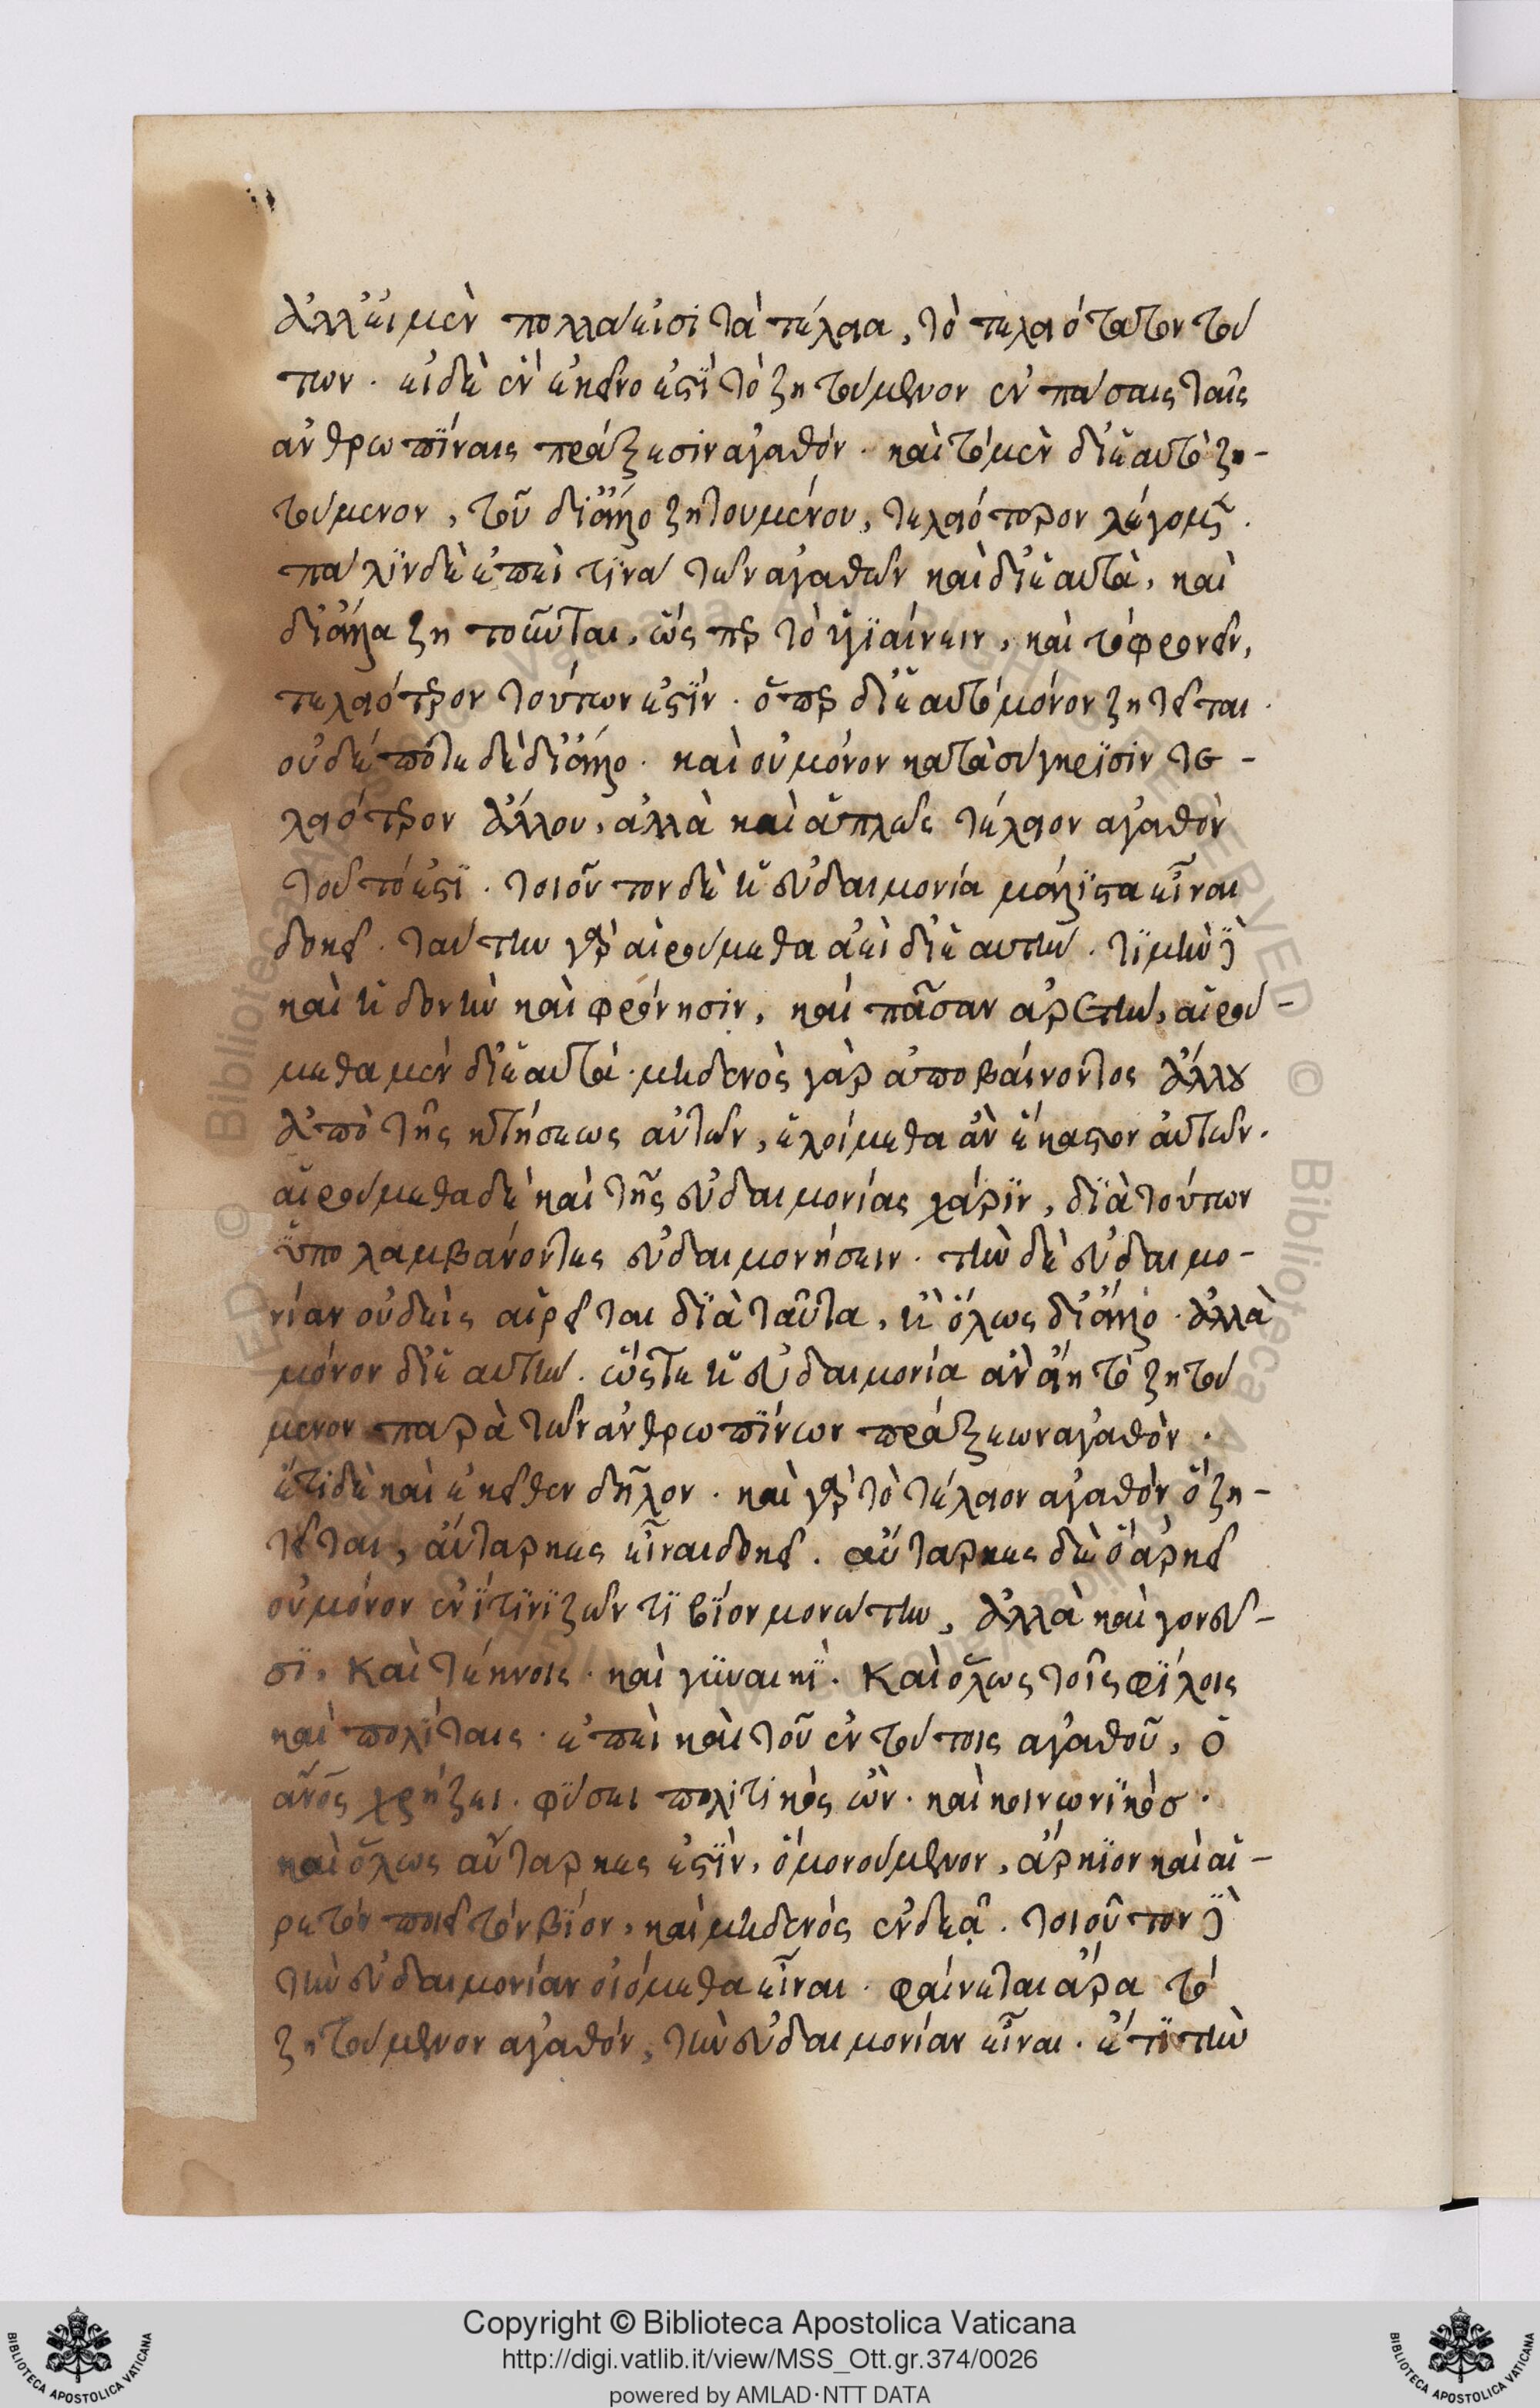 ἀλλ' εἰ μὲν πολλά εἰσι τὰ τέλεια, τὸ τελειότατον τού
των. εἰ δὲ ἓν ἐκεῖνο ἐστὶ τὸ ζητούμενον ἐν πάσαις ταῖς
ἀνθρωπίναις πράξεσιν ἀγαθόν. καὶ τὸ μὲν δι' ἑαυτὸ ζη-
τούμενον, τοῦ δι' ἄλλο ζητουμένου, τελειότερον λέγομεν.
πάλιν δὲ ἐπεὶ τινὰ τῶν ἀγαθῶν καὶ δι' ἑαυτὰ, καὶ
δι' ἄλλα ζητοῦνται, ὥς περ τὸ ὑγιαίνειν, καὶ τὸ φρονεῖν,
τελειότερον τούτων ἐστὶν. ὅπερ δι' ἑαυτὸ μόνον ζητεῖται.
οὐδέποτε δὲ δι' ἄλλο. καὶ οὐ μόνον κατὰ σύγκρισιν τε-
λειότερον ἄλλου, ἀλλὰ καὶ ἁπλῶς τέλειον ἀγαθὸν
τοῦτό ἐστι. τοιοῦτον δὲ ἡ εὐδαιμονία μάλιστα εἶναι
δοκεῖ. ταύτην γὰρ αἱρούμεθα ἀεὶ δι' ἑαυτήν. τιμὴν δὲ
καὶ ἡδονὴν καὶ φρόνησιν, καὶ πᾶσαν ἀρετὴν, αἱρού-
μεθα μὲν δι' ἑαυτά. μηδενὸς γὰρ ἀποβαίνοντος ἄλλου
ἀπὸ τῆς κτήσεως αὐτῶν, ἑλοίμεθα ἂν ἕκαστον αὐτῶν.
αἱρούμεθα δὲ καὶ τῆς εὐδαιμονίας χάριν, διὰ τούτων
ὑπολαμβάνοντες εὐδαιμονήσειν. τὴν δὲ εὐδαιμο-
νίαν οὐδεὶς αἱρεῖται διὰ ταῦτα, ἢ ὅλως δι' ἄλλο. ἀλλὰ
μόνον δι' ἑαυτήν. ὥστε ἡ εὐδαιμονία ἂν εἴη τὸ ζητού
μενον παρὰ τῶν ἀνθρωπίνων πράξεων ἀγαθὸν.
ἔτι δὲ καὶ ἐκεῖθεν δῆλον. καὶ γὰρ τὸ τέλειον ἀγαθὸν ὃ ζη-
τεῖται, αὔταρκες εἶναι δοκεῖ. αὔταρκες δὲ ὃ ἀρκεῖ
οὐ μόνον ἑνί τινι ζῶντι βίον μονώτην, ἀλλὰ καὶ γονεῦ-
σι, καὶ τέκνοις. καὶ γυναικὶ. καὶ ὅλως τοῖς φίλοις
καὶ πολίταις. ἐπεὶ καὶ τοῦ ἐν τούτοις ἀγαθοῦ, ὁ
ἄνος χρήζει. φύσει πολιτικὸς ὢν. καὶ κοινωνικὸς.
καὶ ὅλως αὔταρκες ἐστὶν, ὃ μονούμενον, ἄρκιον καὶ αἱ-
ρετὸν ποιεῖ τὸν βίον, καὶ μηδενὸς ἐνδεᾶ. τοιοῦτον δὲ
τὴν εὐδαιμονίαν οἰόμεθα εἶναι. φαίνεται ἄρα τὸ
ζητούμενον ἀγαθόν, τὴν εὐδαιμονίαν εἶναι. ἔτι τὴν
Copyright © Biblioteca Apostolica Vaticana
http://digi.vatlib.it/view/MSS_Ott.gr.374/0026
powered by AMLAD·NTT DATA